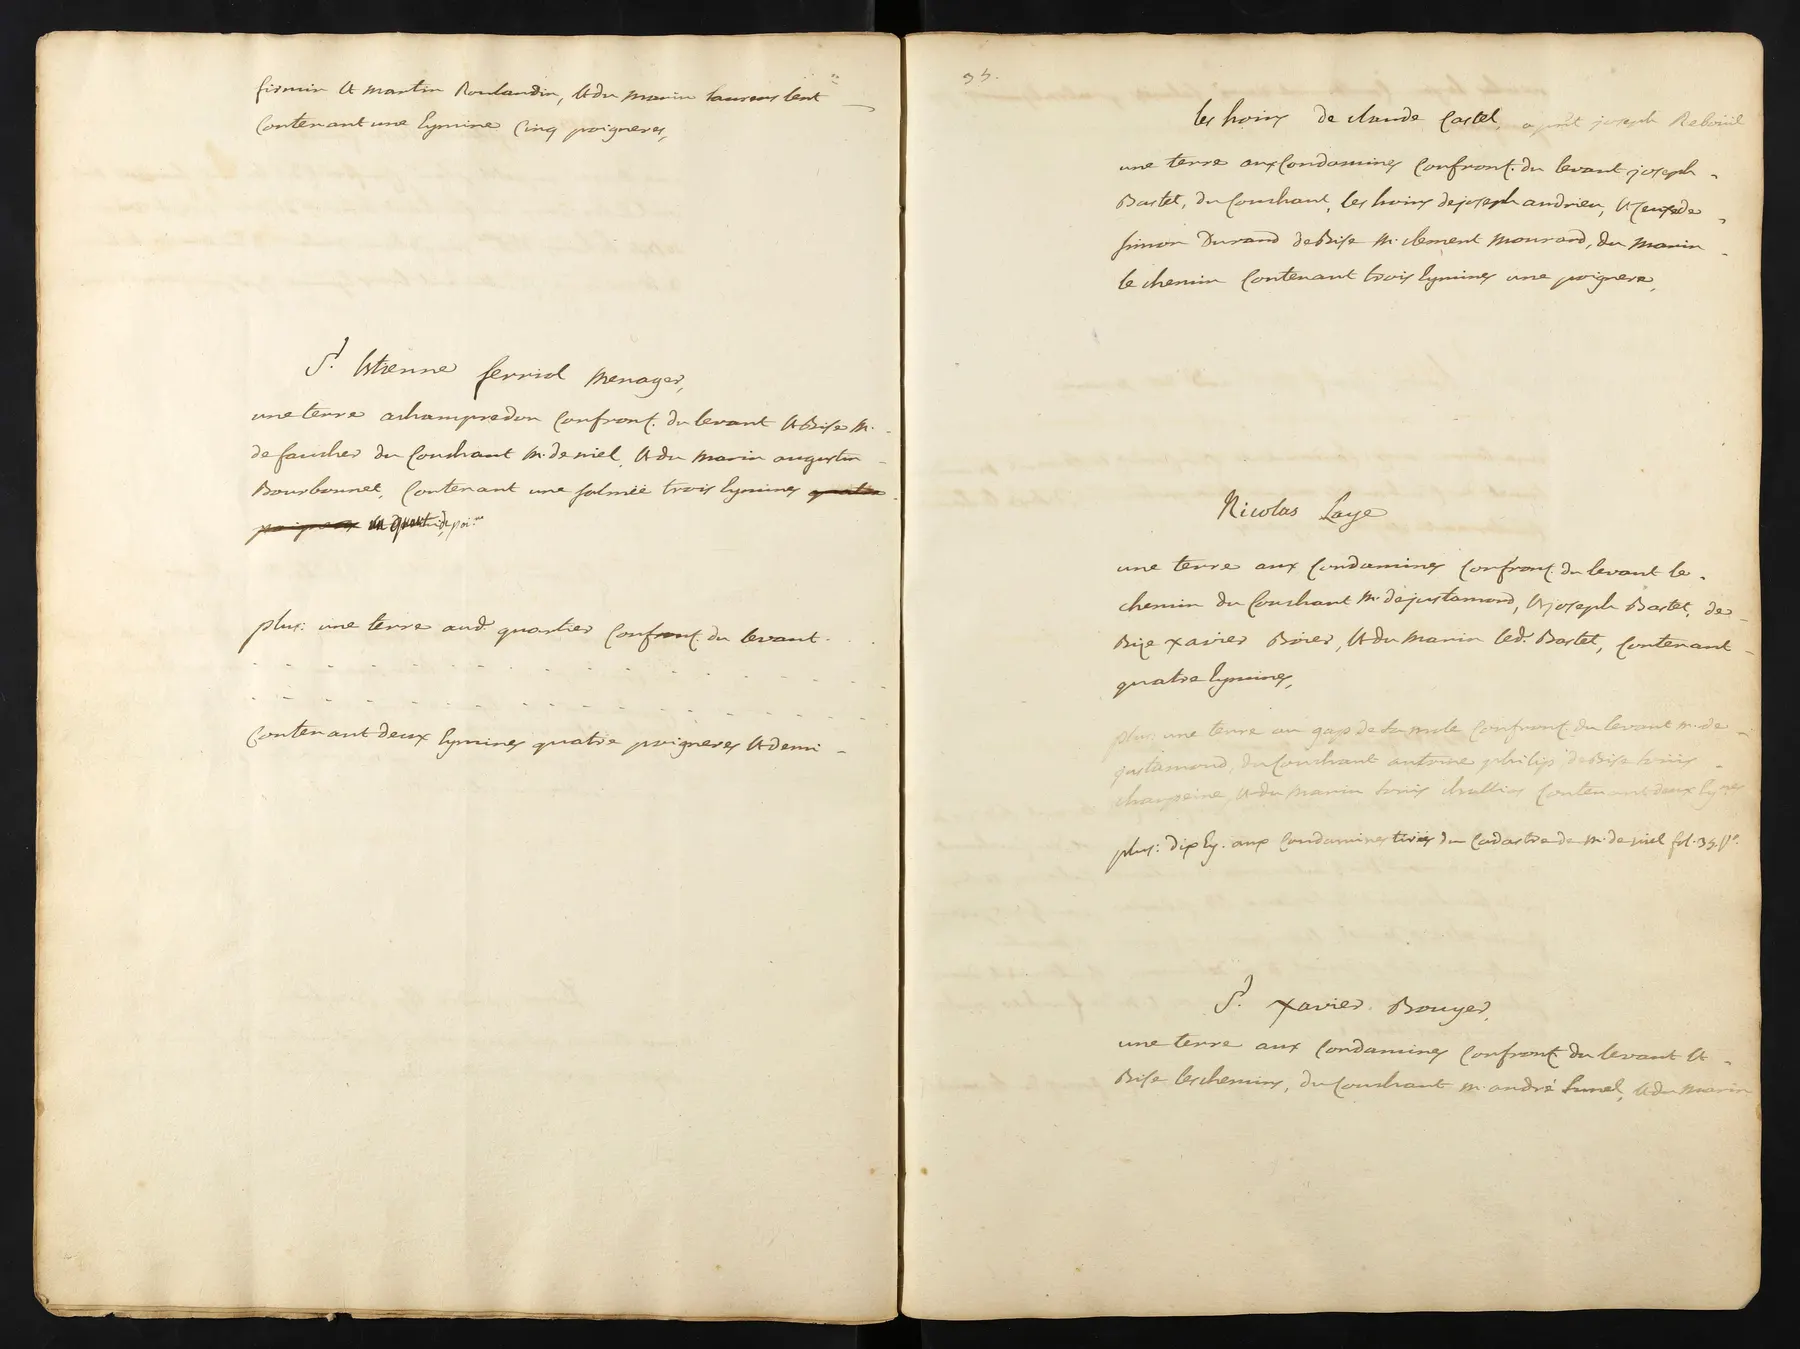 firmin et martin Roulandin, et du marin laurens lent
Contenant une Eymine Cinq poigneres,
Sr. Estienne ferriol menager,
une terre achampredon Confront. du levant et Bise mr.
de faucher du Couchant mr. de niel, et du marin augustin
Bourbonnet, Contenant une salmée trois Eymines quatre
poigneres un quart de poi.re
plus: une terre aud. quartier Confront. du levant.
Contenant deux Eymines quatre poigneres et demi
35.
les hoirs de claude Castel, a pnt joseph Reboüil
une terre aux Condamines Confront. du levant joseph
Bastet, du Couchant, les hoirs de joseph andrieu, et ceux de
simon Durand de Bise mr. clement mourard, du marin
le chemin Contenant trois Eymines une poignere,
Nicolas Laye
une terre aux Condamines Confront. du levant le
chemin du Couchant mr. de justamond, et joseph Bastet, de
Bize xavier Boier, et du marin led. Bastet, Contenant
quatre Eymines,
plus: une terre au gap de la mole Confront. du levant mr. de
justamond, du Couchant antoine philip de Bise loüis
et du marin loüis Contenant deux Ey.nes
plus: dix Ey. aux Condamines tirées du Cadastre de mr. de niel fol. 35. Vo.
Sr. Xavier Bouyer,
une terre aux Condamines Confront. du levant et
Bise les chemins, du Couchant mr. andré lunel, et du marin